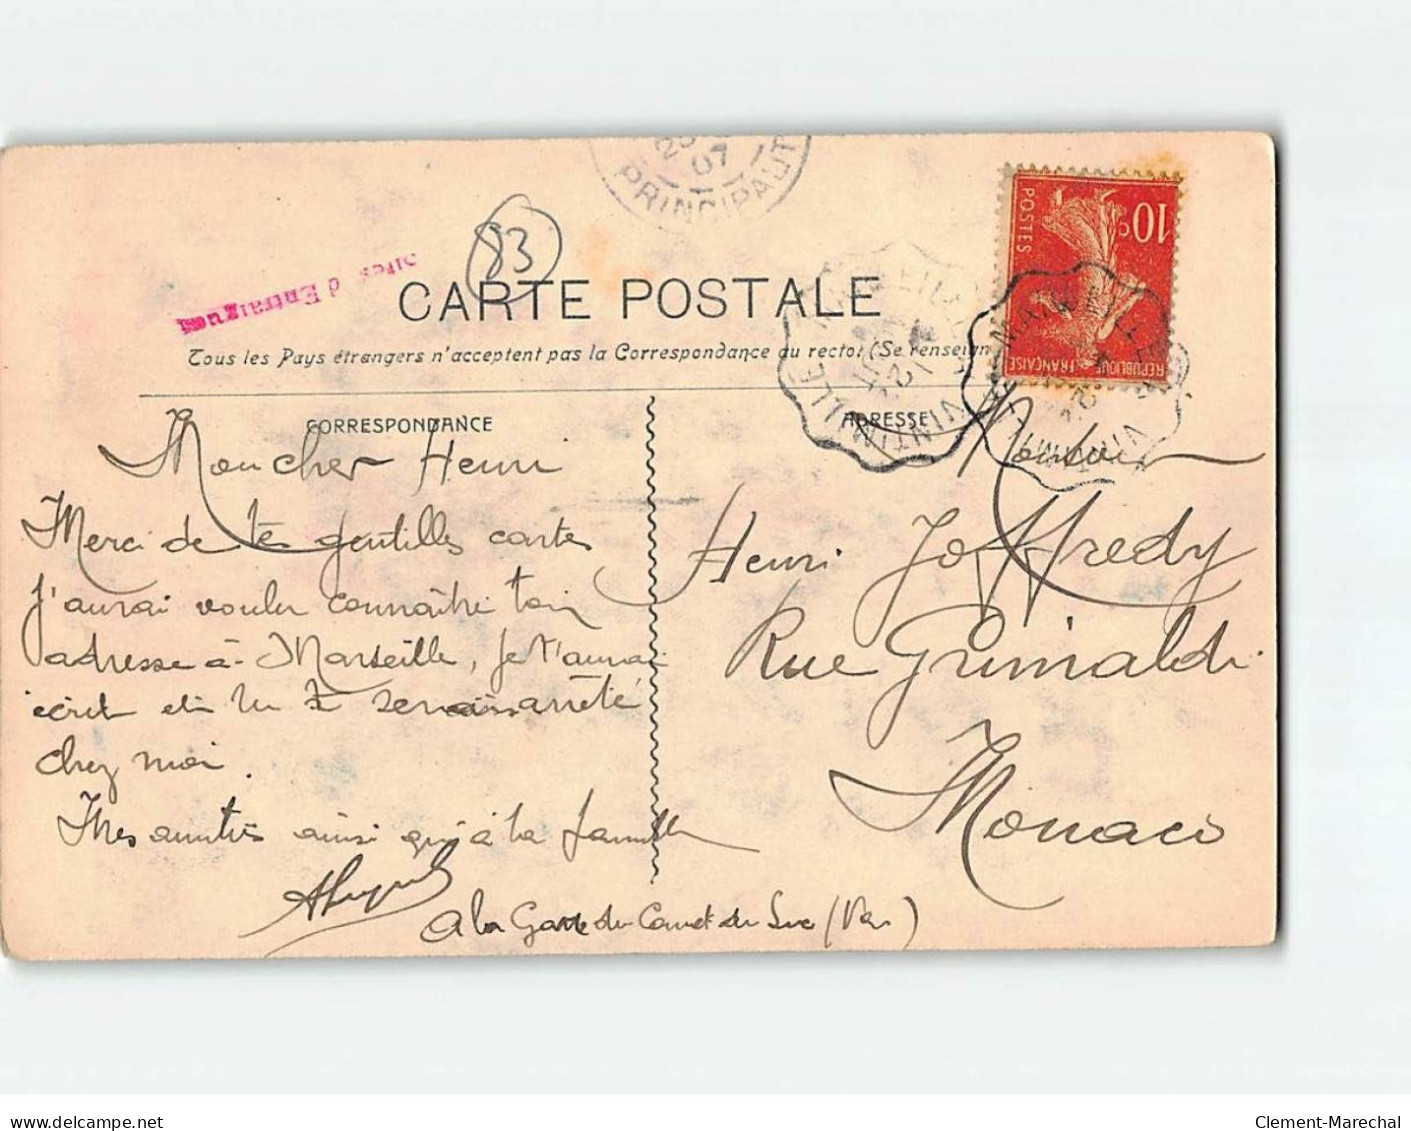 PRINCIPAUT
07
83
d'Entraigues
CARTE POSTALE
Tous les Pays étrangers n'acceptent pas la Correspondance au recto. (Se renseign
10c
POSTES
REPUBLIQUE FRANÇAISE
VINTIMILLE
CORRESPONDANCE
ADRESSE
Mon cher Henri
Merci de tes gentilles cartes
J'aurai voulu connaître ton
adresse à Marseille, je t'aurai
écrit et tu te serais arrêté
chez moi.
Mes amitiés ainsi qu'à ta famille
A la Gare du Cannet du Luc (Var)
Monsieur
Henri Joffredy
Rue Grimaldi
Monaco
Clement-Marechal